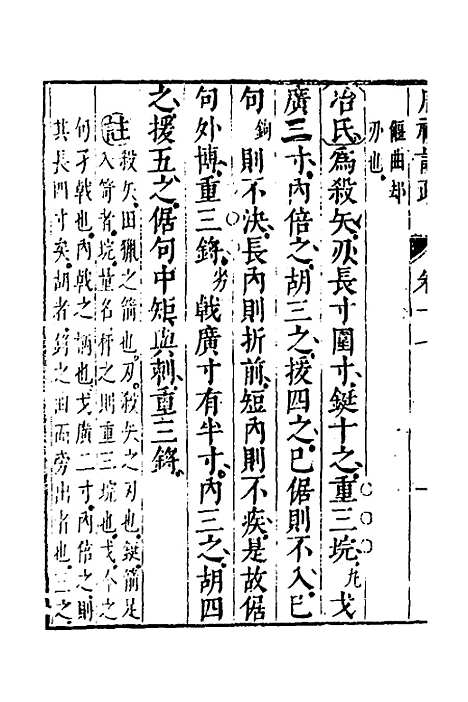 偃曲却
刃也
冶氏爲殺矢刃長寸圍寸鋌十之重三垸九戈
廣二寸內倍之胡三之援四之已倨則不入已
句鉤則不決長內則折前短內則不疾是故倨
句外博重三鋝劣戟廣寸有半寸內三之胡四
之援五之倨句中矩與刺重三鋝
註殺矢田獵之箭也刃殺矢之刃也鋌箭足
入箭者垸量名秤之則重三垸也戈今之
句孑戟也內戟之柄也戈廣二寸內倍之則
其長四寸矣胡者鋝之曲而旁出者也三之